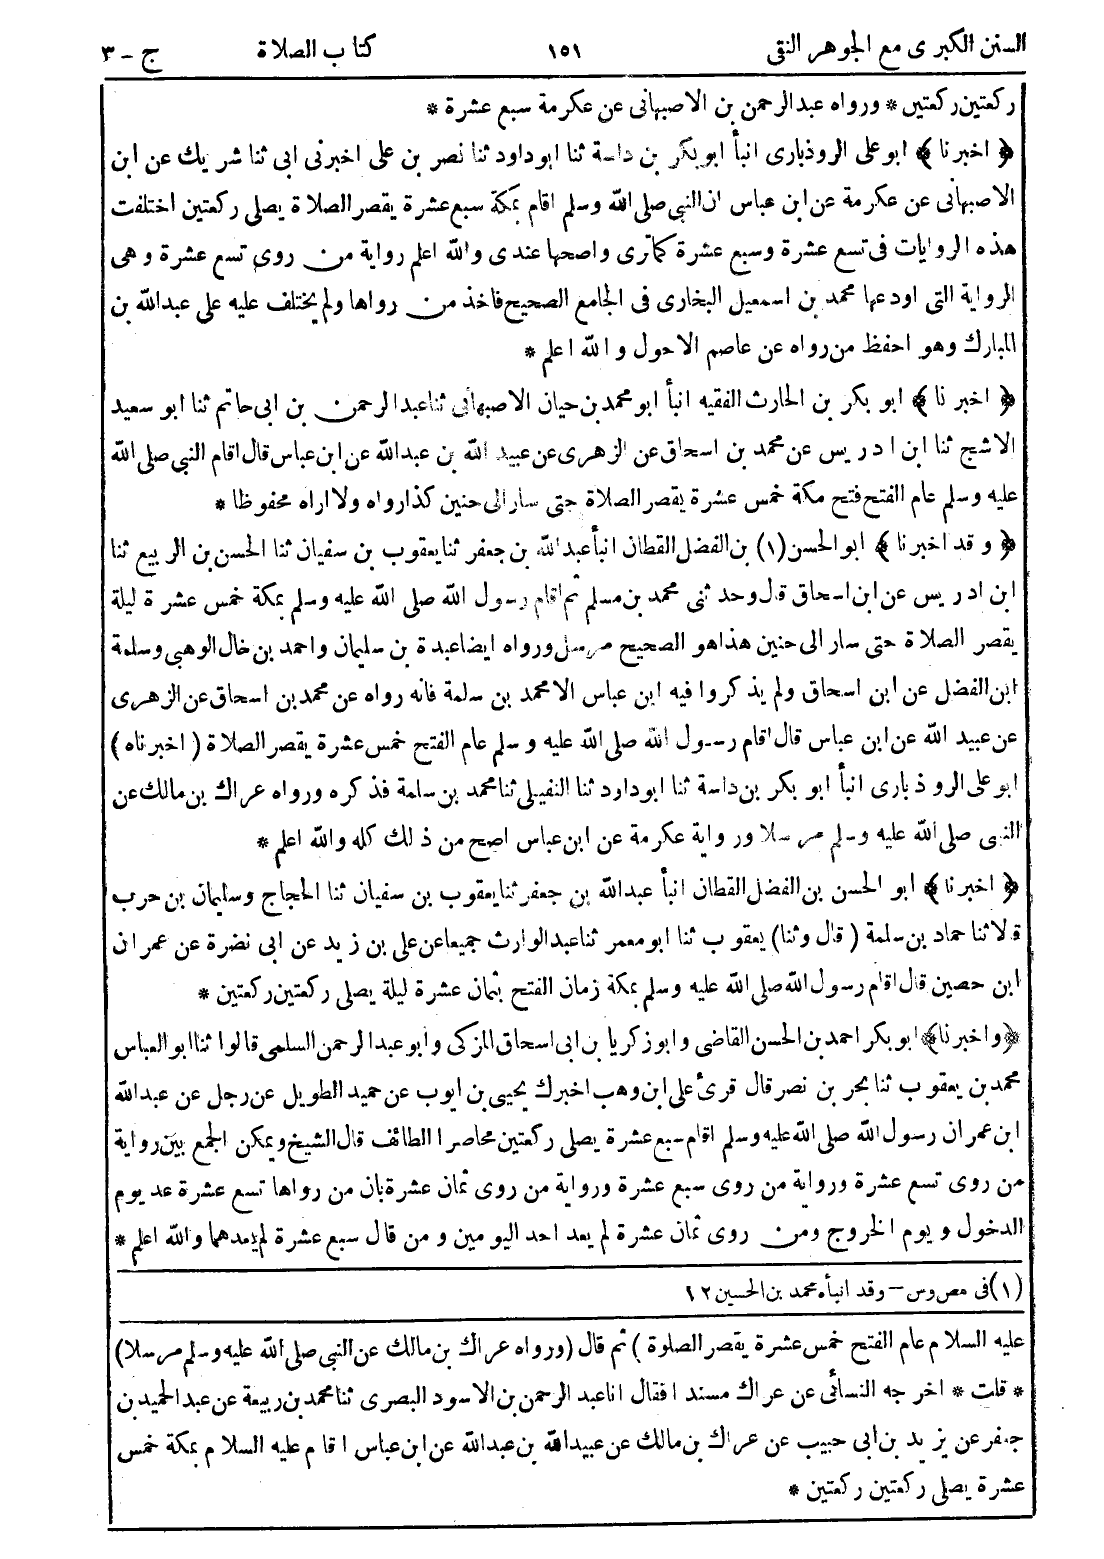 السنن الكبرى مع الجوهر النقى ١٥١ كتاب الصلاة ج - ٣
ركعتين ركعتين * ورواه عبدالرحمن بن الاصبهانى عن عكرمة سبع عشرة *
﴿ اخبرنا ﴾ ابو على الروذبارى انبأ ابو بكر بن داسة ثنا ابوداود ثنا نصر بن على اخبرنى ابى ثنا شريك عن ابن
الاصبهانى عن عكرمة عن ابن عباس ان النبى صلى الله وسلم اقام بمكة سبع عشرة يقصر الصلاة يصلى ركعتين اختلفت
هذه الروايات فى تسع عشرة وسبع عشرة كماترى واصحها عندى والله اعلم رواية من روى تسع عشرة وهى
الرواية التى اودعها محمد بن اسمعيل البخارى فى الجامع الصحيح فاخذ من رواها ولم يختلف عليه على عبدالله بن
المبارك وهو احفظ من رواه عن عاصم الاحول والله اعلم *
﴿ اخبرنا ﴾ ابو بكر بن الحارث الفقيه انبأ ابو محمد بن حيان الاصبهانى ثنا عبدالرحمن بن ابى حاتم ثنا ابو سعيد
الاشج ثنا ابن ادريس عن محمد بن اسحاق عن الزهرى عن عبيد الله بن عبدالله عن ابن عباس قال اقام النبى صلى الله
عليه وسلم عام الفتح فتح مكة خمس عشرة يقصر الصلاة حتى سار الى حنين كذا رواه ولا اراه محفوظا *
﴿ وقد اخبرنا ﴾ ابو الحسن (١) بن الفضل القطان انبأ عبدالله بن جعفر ثنا يعقوب بن سفيان ثنا الحسن بن الربيع ثنا
ابن ادريس عن ابن اسحاق قال وحدثنى محمد بن مسلم ثم اقام رسول الله صلى الله عليه وسلم بمكة خمس عشرة ليلة
يقصر الصلاة حتى سار الى حنين هذا هو الصحيح مرسل ورواه ايضا عبدة بن سليمان واحمد بن خال الوهبى وسلمة
ابن الفضل عن ابن اسحاق ولم يذكروا فيه ابن عباس الا محمد بن سلمة فانه رواه عن محمد بن اسحاق عن الزهرى
عن عبيد الله عن ابن عباس قال اقام رسول الله صلى الله عليه وسلم عام الفتح خمس عشرة يقصر الصلاة ( اخبرناه )
ابو على الروذبارى انبأ ابو بكر بن داسة ثنا ابودارد ثنا النفيلى ثنا محمد بن سلمة فذكره ورواه عراك بن مالك عن
النبى صلى الله عليه وسلم مرسلا ورواية عكرمة عن ابن عباس اصح من ذلك كله والله اعلم *
﴿ اخبرنا ﴾ ابو الحسن بن الفضل القطان انبأ عبدالله بن جعفر ثنا يعقوب بن سفيان ثنا الحجاج وسليمان بن حرب
قالا ثنا حماد بن سلمة ( قال وثنا ) يعقوب ثنا ابو معمر ثنا عبدالوارث جميعا عن على بن زيد عن ابى نضرة عن عمران
ابن حصين قال اقام رسول الله صلى الله عليه وسلم بمكة زمان الفتح ثمان عشرة ليلة يصلى ركعتين ركعتين *
﴿ واخبرنا ﴾ ابو بكر احمد بن الحسن القاضى وابو زكريا بن ابى اسحاق المزكى وابو عبدالرحمن السلمى قالوا ثنا ابو العباس
محمد بن يعقوب ثنا بحر بن نصر قال قرئ على ابن وهب اخبرك يحيى بن ايوب عن حميد الطويل عن رجل عن عبدالله
ابن عمر ان رسول الله صلى الله عليه وسلم اقام سبع عشرة يصلى ركعتين محاصرا الطائف قال الشيخ ويمكن الجمع بين رواية
من روى تسع عشرة ورواية من روى سبع عشرة ورواية من روى ثمان عشرة بان من رواها تسع عشرة عد يوم
الدخول ويوم الخروج ومن روى ثمان عشرة لم يعد احد اليومين ومن قال سبع عشرة لم يعدهما والله اعلم *
(١) فى مص وس - وقد انبأه محمد بن الحسين ١٢
عليه السلام عام الفتح خمس عشرة يقصر الصلوة ) ثم قال ( ورواه عراك بن مالك عن النبى صلى الله عليه وسلم مرسلا )
* قلت * اخرجه النسائى عن عراك مسندا فقال انا عبدالرحمن بن الاسود البصرى ثنا محمد بن ربيعة عن عبدالحميد بن
جعفر عن يزيد بن ابى حبيب عن عراك بن مالك عن عبيدالله بن عبدالله عن ابن عباس اقام عليه السلام بمكة خمس
عشرة يصلى ركعتين ركعتين *